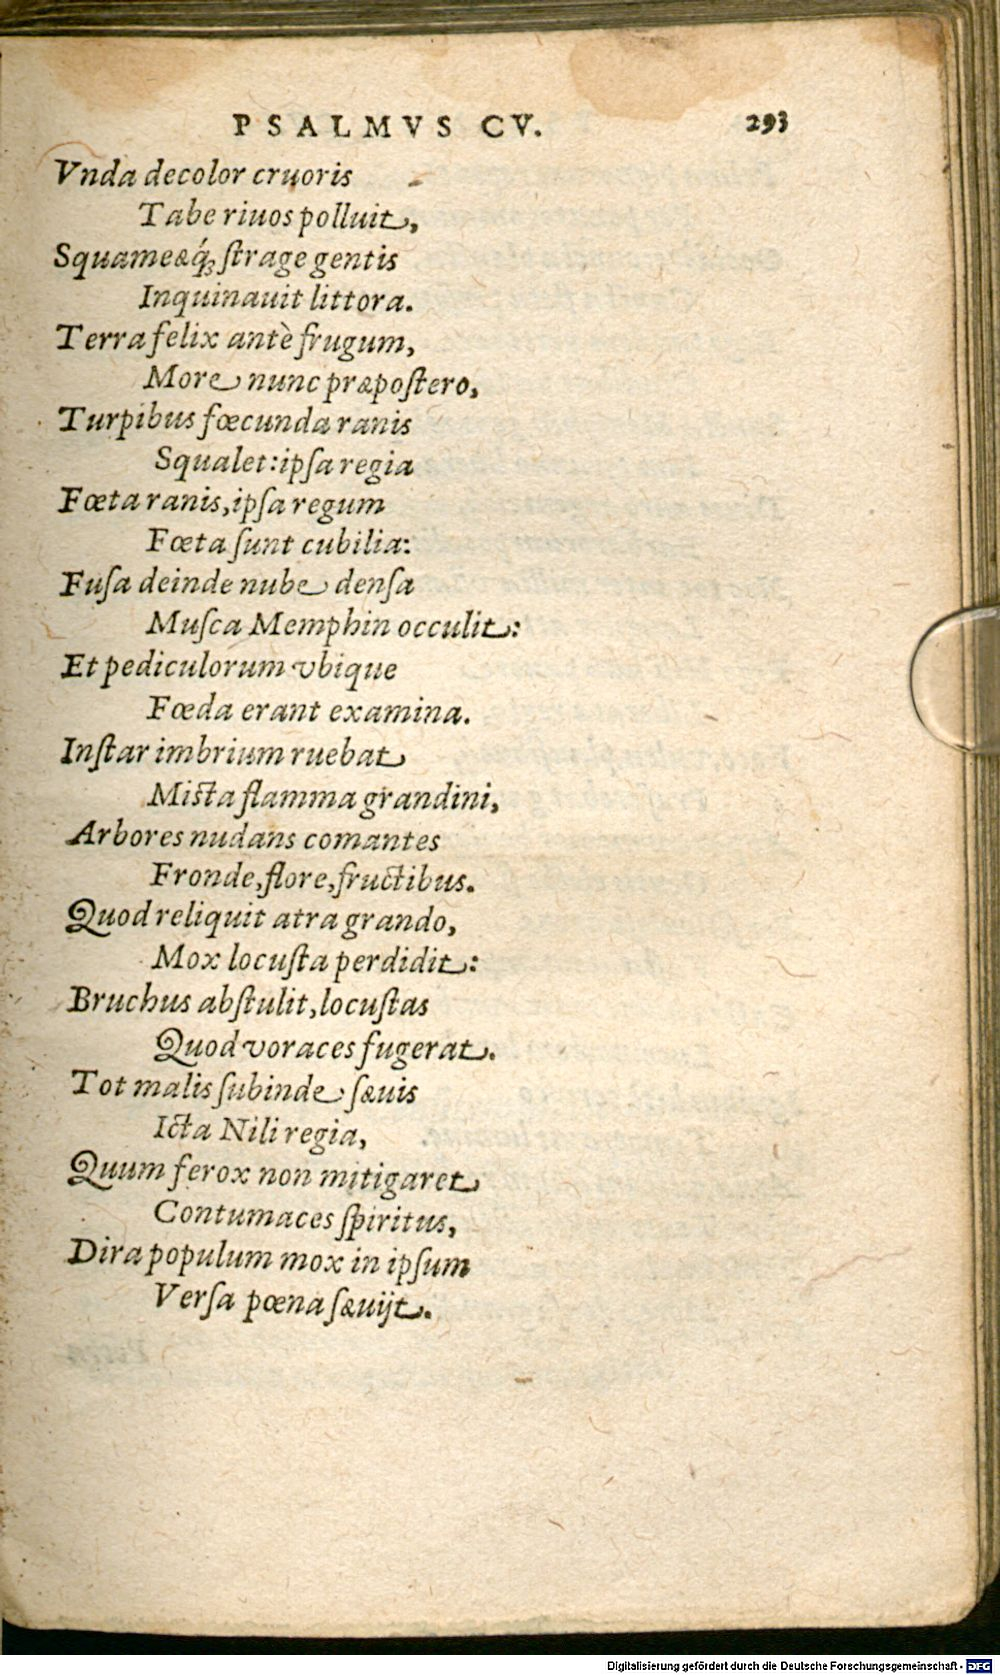 PSALMVS CV. 293
Vnda decolor cruoris
Tabe riuos polluit,
Squameæq́; ſtrage gentis
Inquinauit littora.
Terra felix antè frugum,
More nunc præpoſtero,
Turpibus fœcunda ranis
Squalet: ipſa regia
Fœta ranis, ipſa regum
Fœta ſunt cubilia:
Fuſa deinde nube denſa
Muſca Memphin occulit:
Et pediculorum vbique
Fœda erant examina.
Inſtar imbrium ruebat
Miſta flamma grandini,
Arbores nudans comantes
Fronde, flore, fructibus.
Quod reliquit atra grando,
Mox locuſta perdidit:
Bruchus abſtulit, locuſtas
Quod voraces fugerat.
Tot malis ſubinde ſæuis
Icta Nili regia,
Quum ferox non mitigaret
Contumaces ſpiritus,
Dira populum mox in ipſum
Verſa pœna ſæuijt.
Digitalisierung gefördert durch die Deutsche Forschungsgemeinschaft - DFG